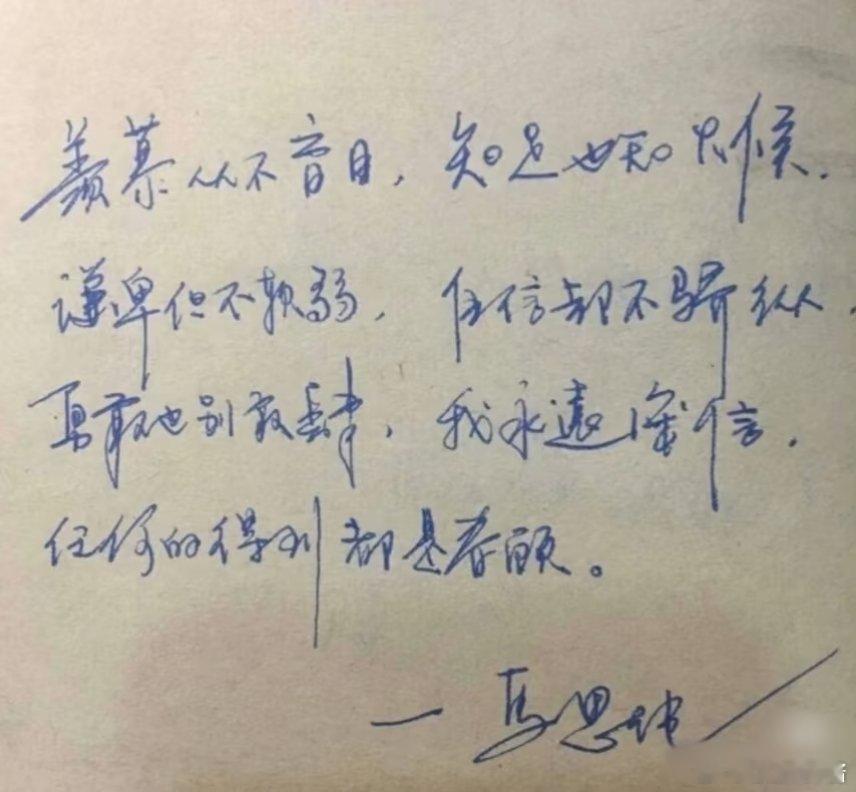 羡慕从不盲目，知足也知火候.
谦卑但不软弱，自信却不骄纵，
勇敢也别放肆，我永远深信，
任何的得到都是眷顾。
一 马思纯